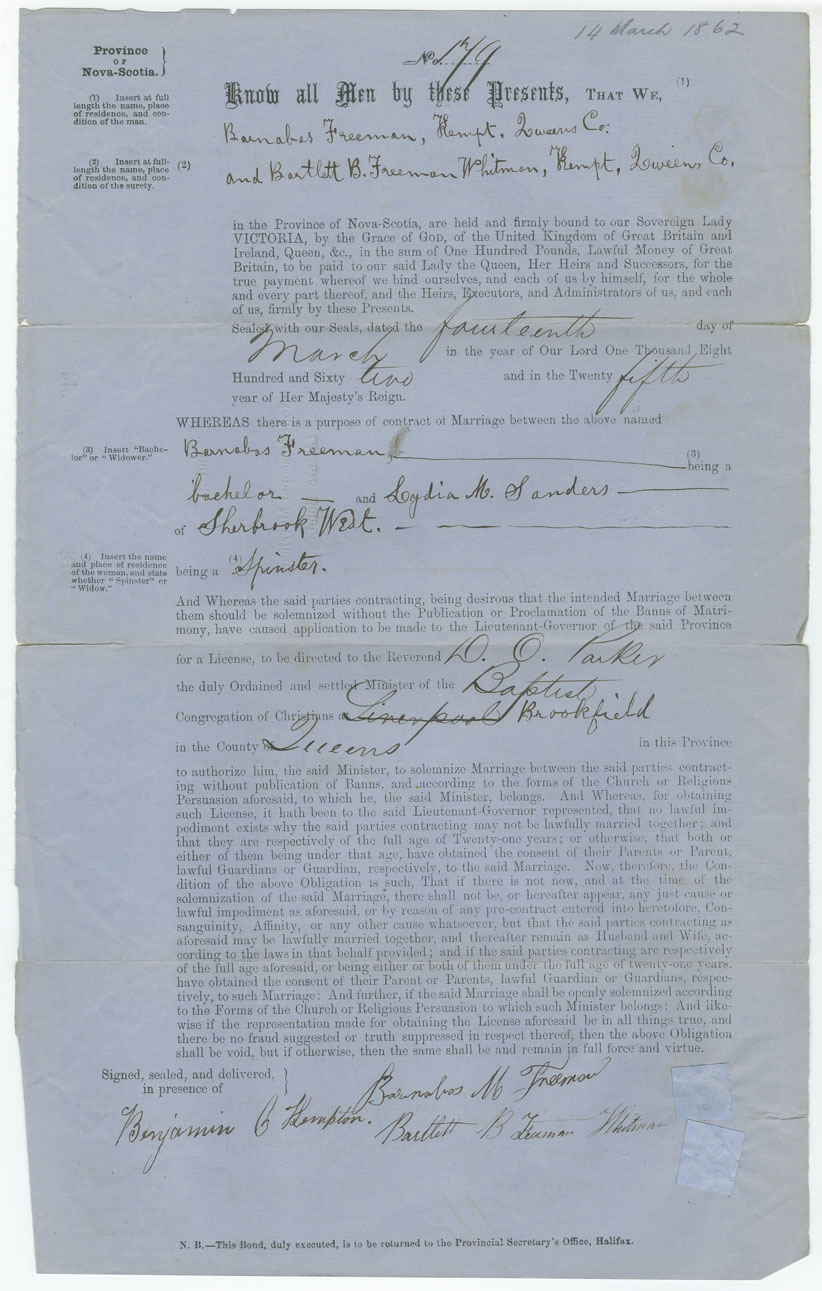 14 March 1862
Province
OF
Nova-Scotia.
No. 179
Know all Men by these Presents, THAT WE, (1)
(1) Insert at full
length the name, place
of residence, and con-
dition of the man.
Barnabas Freeman, Kempt. Queens Co.
(2) Insert at full-
length the name, place
of residence, and con-
dition of the surety.
(2) and Bartlett B. Freeman Whitman, Kempt, Queens Co.
in the Province of Nova-Scotia, are held and firmly bound to our Sovereign Lady
VICTORIA, by the Grace of GOD, of the United Kingdom of Great Britain and
Ireland, Queen, &c., in the sum of One Hundred Pounds, Lawful Money of Great
Britain, to be paid to our said Lady the Queen, Her Heirs and Successors, for the
true payment whereof we bind ourselves, and each of us by himself, for the whole
and every part thereof, and the Heirs, Executors, and Administrators of us, and each
of us, firmly by these Presents.
Sealed with our Seals, dated the fourteenth day of
March in the year of Our Lord One Thousand Eight
Hundred and Sixty two and in the Twenty fifth
year of Her Majesty's Reign.
WHEREAS there is a purpose of contract of Marriage between the above named
(3) Insert "Bache-
lor" or "Widower."
Barnabas Freeman (3) being a
bachelor and Lydia M. Sanders
of Sherbrook West.
(4) Insert the name
and place of residence
of the woman, and state
whether "Spinster" or
"Widow."
being a (4) Spinster.
And Whereas the said parties contracting, being desirous that the intended Marriage between
them should be solemnized without the Publication or Proclamation of the Banns of Matri-
mony, have caused application to be made to the Lieutenant-Governor of the said Province
for a License, to be directed to the Reverend D. O. Parker
the duly Ordained and settled Minister of the Baptist
Congregation of Christians a Liverpool Brookfield
in the County of Queens in this Province
to authorize him, the said Minister, to solemnize Marriage between the said parties contract-
ing without publication of Banns, and according to the forms of the Church or Religious
Persuasion aforesaid, to which he, the said Minister, belongs. And Whereas, for obtaining
such License, it hath been to the said Lieutenant-Governor represented, that no lawful im-
pediment exists why the said parties contracting may not be lawfully married together; and
that they are respectively of the full age of Twenty-one years; or otherwise, that both or
either of them being under that age, have obtained the consent of their Parents or Parent,
lawful Guardians or Guardian, respectively, to the said Marriage. Now, therefore, the Con-
dition of the above Obligation is such, That if there is not now, and at the time of the
solemnization of the said Marriage, there shall not be, or hereafter appear, any just cause or
lawful impediment as aforesaid, or by reason of any pre-contract entered into heretofore, Con-
sanguinity, Affinity, or any other cause whatsoever, but that the said parties contracting as
aforesaid may be lawfully married together, and thereafter remain as Husband and Wife, ac-
cording to the laws in that behalf provided; and if the said parties contracting are respectively
of the full age aforesaid, or being either or both of them under the full age of twenty-one years,
have obtained the consent of their Parent or Parents, lawful Guardian or Guardians, respec-
tively, to such Marriage: And further, if the said Marriage shall be openly solemnized according
to the Forms of the Church or Religious Persuasion to which such Minister belongs: And like-
wise if the representation made for obtaining the License aforesaid be in all things true, and
there be no fraud suggested or truth suppressed in respect thereof, then the above Obligation
shall be void, but if otherwise, then the same shall be and remain in full force and virtue.
Signed, sealed, and delivered,
in presence of
Barnabas M Freeman
Benjamin C Kempton.
Bartlett B Freeman Whitman
N. B.—This Bond, duly executed, is to be returned to the Provincial Secretary's Office, Halifax.